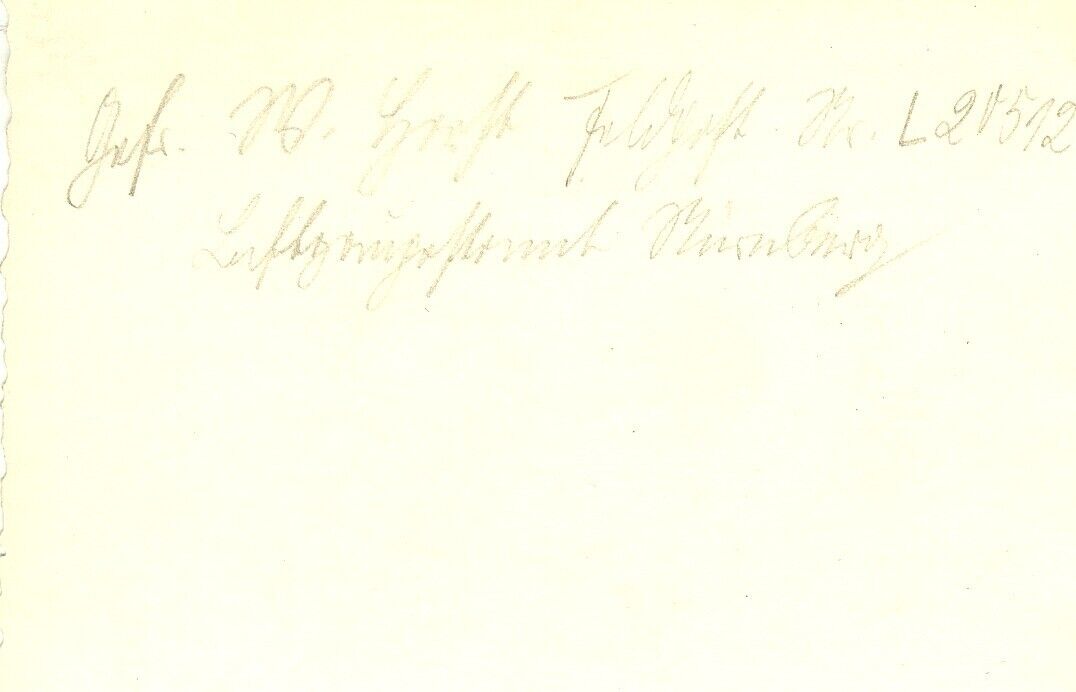 Gefr. W. Horst Feldpost Nr. L 20512
Luftgaupostamt Nürnberg